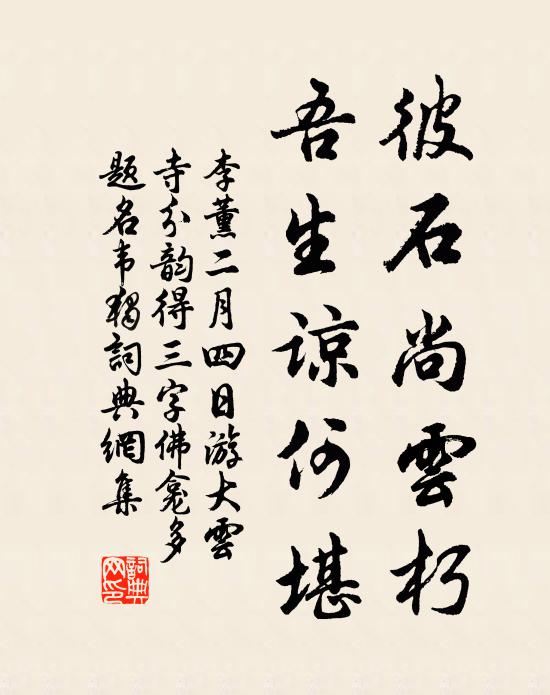 彼石尚雲朽
吾生諒何堪
李薰二月四日游大雲
寺分韵得三字佛龛多
题名韦獨詞典網集
詞典
网印